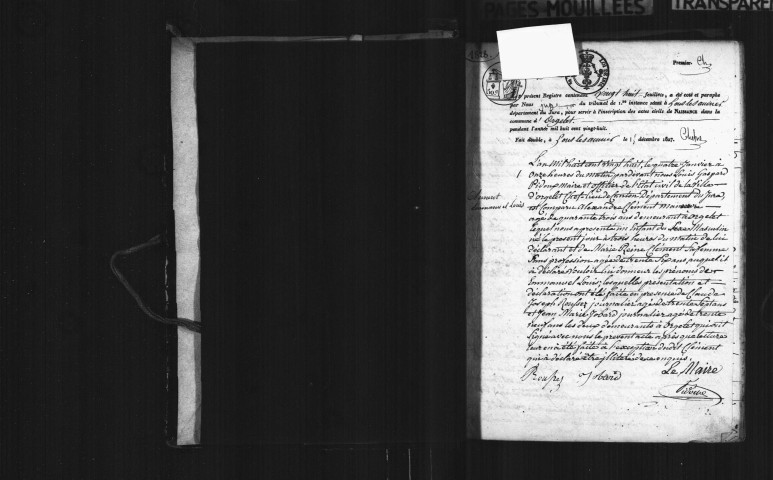 PAGES MOUILLÉES
TRANSPAREN
Premier.
Le présent Registre contenant vingt huit feuillets, a été coté et paraphé
par Nous juge du tribunal de 1.ère instance séant à Lons le saunier
département du Jura, pour servir à l'inscription des actes civils de NAISSANCE dans la
commune d'Orgelet
pendant l'année mil huit cent vingt-huit.
Fait double, à Lons le saunier le 15 décembre 1827.
L'an mil huit cent vingt huit, le quatre Janvier à
1
onze heures du matin pardevant nous Louis Gaspard
Pidoux Maire et officier de l'état civil de la ville
d'orgelet Chef lieu de Canton Département du Jura,
Clément
Emmanuel et Louis
est Comparu Alexandre Clément
agé de quarante trois ans demeurant à orgelet
lequel nous a présenté un Enfant du Sexe Masculin
né le present jour à trois heures du matin de lui
déclarant et de Marie Reine Clément Sa femme
Sans profession agée de trente Six ans auquel il
a déclaré vouloir lui donner les prénoms de
Emmanuel et Louis; lesquelles présentation et
déclaration ont été faite en presence de Claude
Joseph Rousset journalier agé de trente Sept ans
et Jean Marie Jobard journalier agé de trente
neuf ans les deux demeurants à Orgelet qui ont
Signé avec nous le present acte après que lecture
leur en a été faite à l'exception dudit Clément
qui a déclaré être illitéré de ce enquis.
Rousset Jobard Le Maire
Pidoux